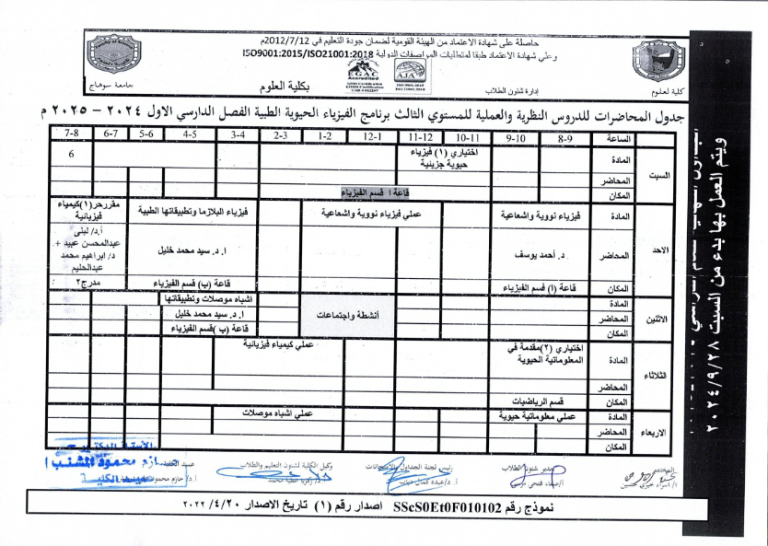 حاصلة على شهادة الاعتماد من الهيئة القومية لضمان جودة التعليم في 2012/7/12م
وعلى شهادة الاعتماد طبقا لمتطلبات المواصفات الدولية ISO9001:2015/ISO21001:2018
EGAC
كلية لعلوم
إدارة شئون الطلاب
بكلية العلوم
جامعة سوهاج
جدول المحاضرات للدروس النظرية والعملية للمستوي الثالث برنامج الفيزياء الحيوية الطبية الفصل الدارسي الاول ٢٠٢٤ – ٢٠٢٥ م
الساعة 8-9 9-10 10-11 11-12 12-1 1-2 2-3 3-4 4-5 5-6 6-7 7-8
السبت
المادة اختياري (١) فيزياء حيوية جزيئية 6
المحاضر
المكان قاعة ا قسم الفيزياء
الاحد
المادة فيزياء نووية واشعاعية عملي فيزياء نووية واشعاعية فيزياء البلازما وتطبيقاتها الطبية مقررحر(١)كيمياء فيزيائية
المحاضر د. أحمد يوسف ا.د. سيد محمد خليل أ.د/ لبنى عبدالمحسن عبيد + د/ ابراهيم محمد عبدالحليم
المكان قاعة (ا) قسم الفيزياء قاعة (ب) قسم الفيزياء مدرج٢
الاثنين
المادة أنشطة واجتماعات اشباه موصلات وتطبيقاتها
المحاضر ا.د. سيد محمد خليل
المكان قاعة (ب) قسم الفيزياء
الثلاثاء
المادة اختياري (٢)مقدمة في المعلوماتية الحيوية عملي كيمياء فيزيائية
المحاضر
المكان قسم الرياضيات
الاربعاء
المادة عملي معلوماتية حيوية عملي اشباه موصلات
المحاضر
المكان
مدير شئون الطلاب
وكيل الكلية لشئون التعليم والطلاب
عميد الكلية
نموذج رقم SScS0Et0F010102 اصدار رقم (١) تاريخ الاصدار ٢٠٢٢/٤/٢٠
ويتم العمل بها بدء من السبت ٢٠٢٤/٩/٢٨